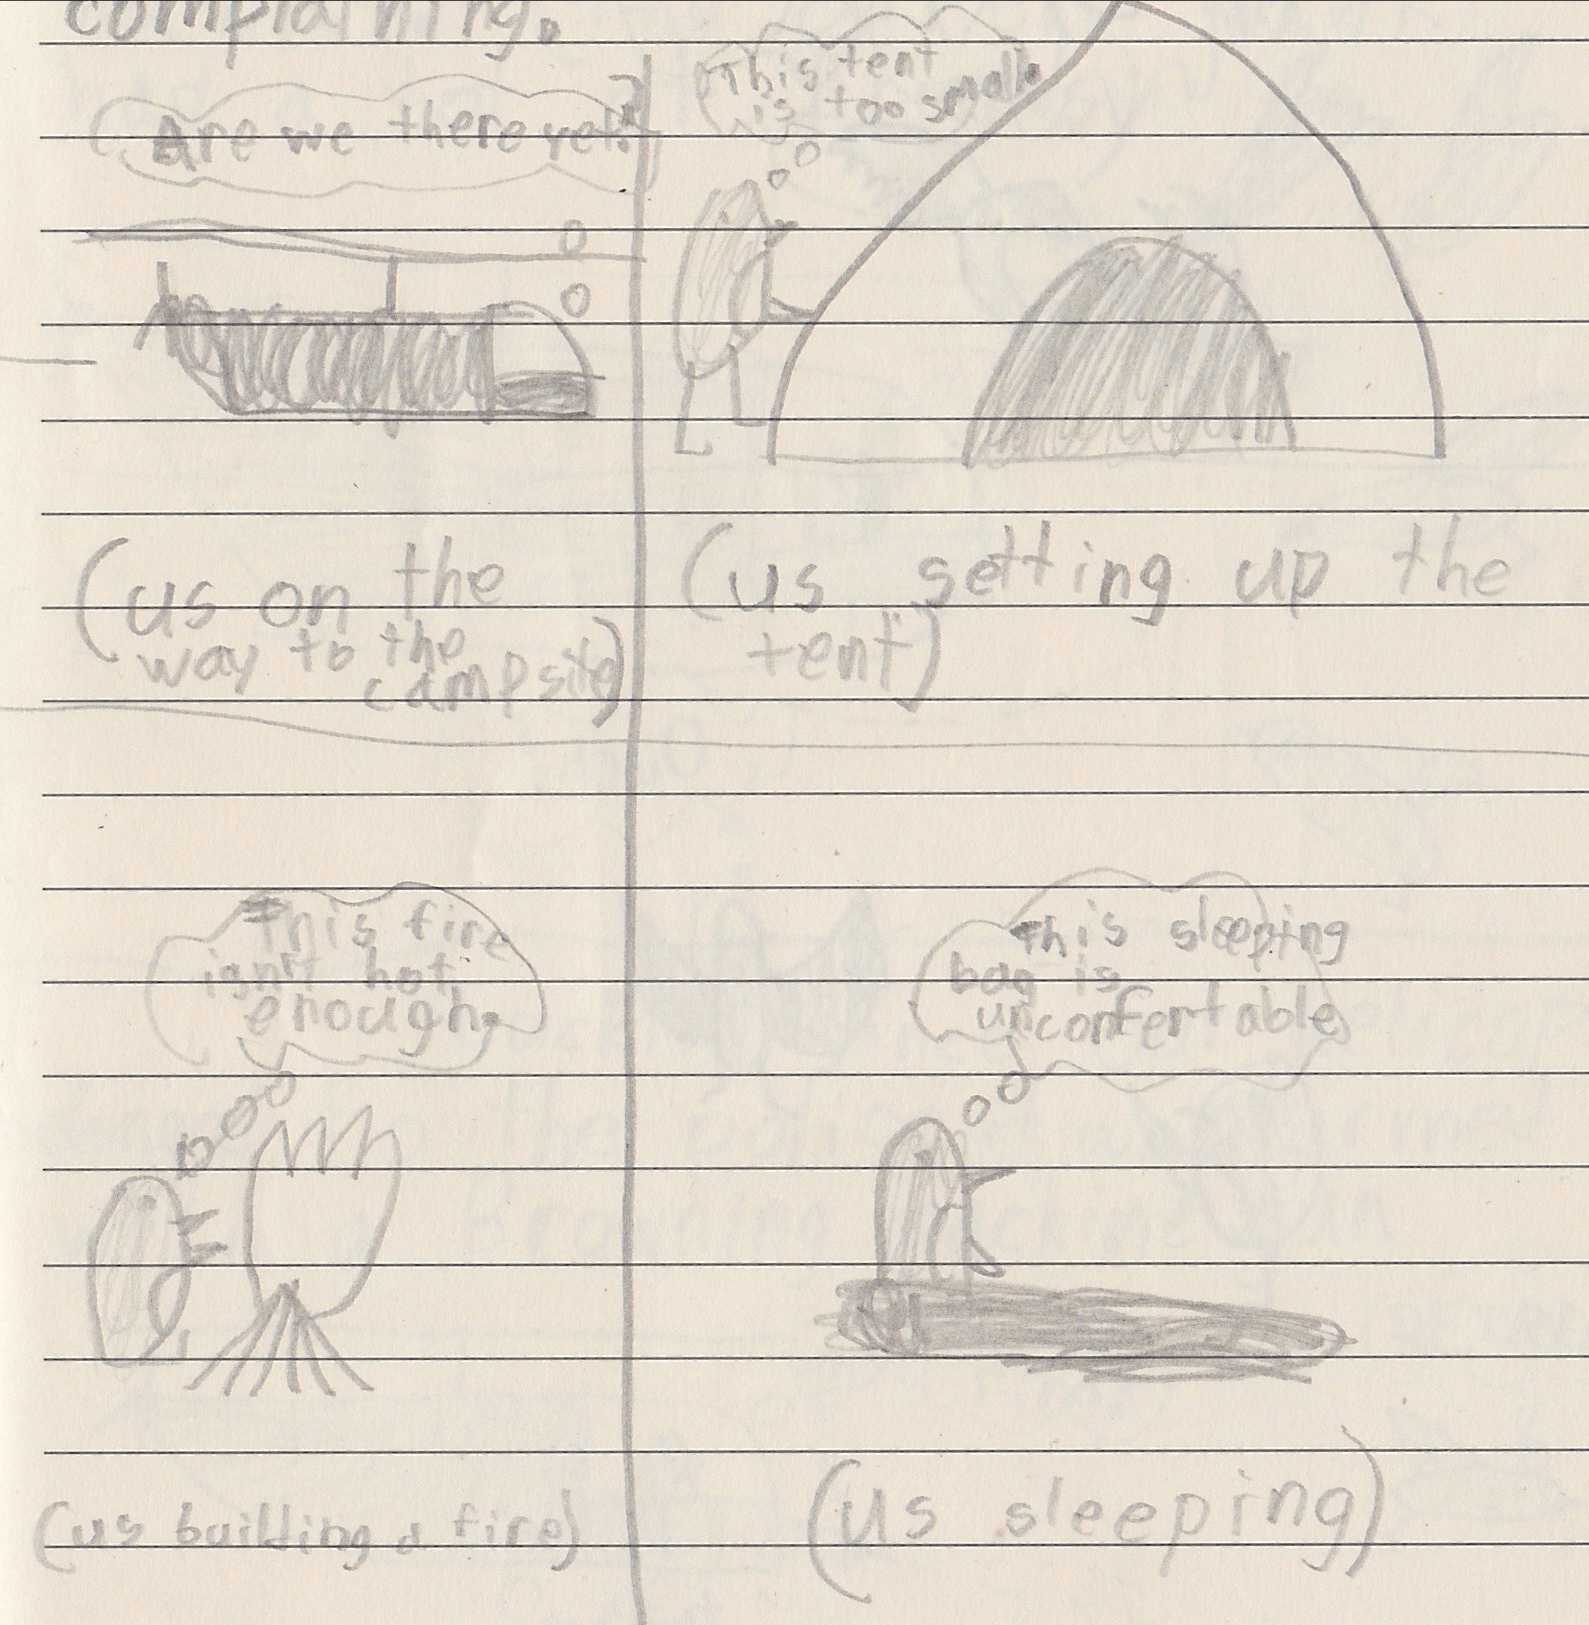 complaining.
Are we there yet?
(us on the
way to the
campsite)
This tent
is too small.
(us setting up the
tent)
This fire
isn't hot
enough.
(us building a fire)
This sleeping
bag is
unconfertable.
(us sleeping)